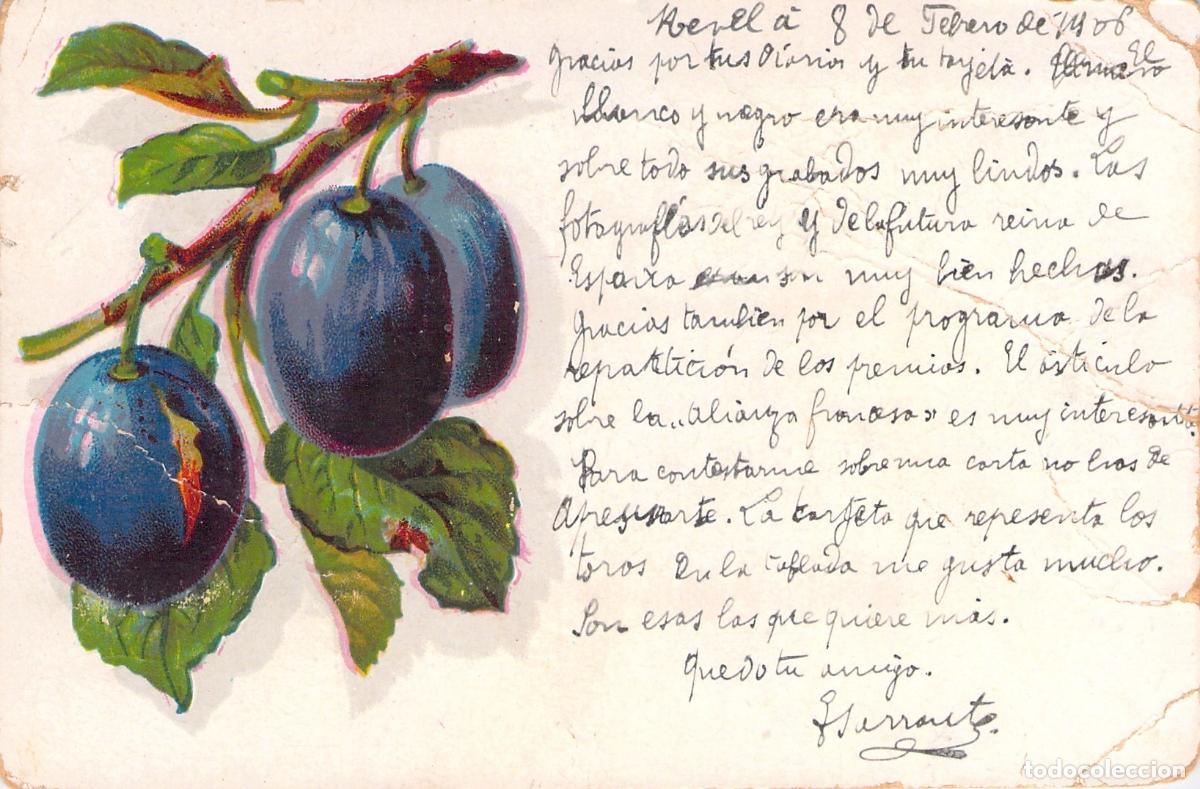 Revel á 8 de Febrero de 1906
Gracias por tus diarios y tu tarjeta. El
blanco y negro era muy interesante y
sobre todo sus grabados muy lindos. Las
fotografías del rey y de la futura reina de
España son muy bien hechas.
Gracias tambien por el programa de la
repartición de los premios. El artículo
sobre la „alianza francesa" es muy interesante.
Para contestarme sobre mia carta no has de
apresurarte. La tarjeta que representa los
toros en la tablada me gusta mucho.
Son esas las que quiere más.
Quedo tu amigo.
todocoleccion